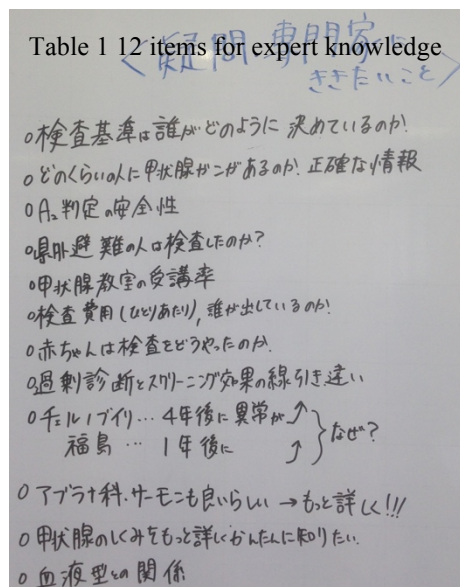 Table 1 12 items for expert knowledge
<疑問・専門家に
ききたいこと>
○検査基準は誰がどのように決めているのか!
○どのくらいの人に甲状腺ガンがあるのか!正確な情報
○A₂判定の安全性
○県外避難の人は検査したのか?
○甲状腺教室の受講率
○検査費用(ひとりあたり),誰が出しているのか!
○赤ちゃんは検査をどうやったのか.
○過剰診断とスクリーニング効果の線引き違い
○チェルノブイリ… 4年後に異常が↑
福島 … 1年後に ↑ } なぜ?
○アブラナ科・サーモンも良いらしい →もっと詳しく!!!
○甲状腺のしくみをもっと詳しくかんたんに知りたい.
○血液型との関係